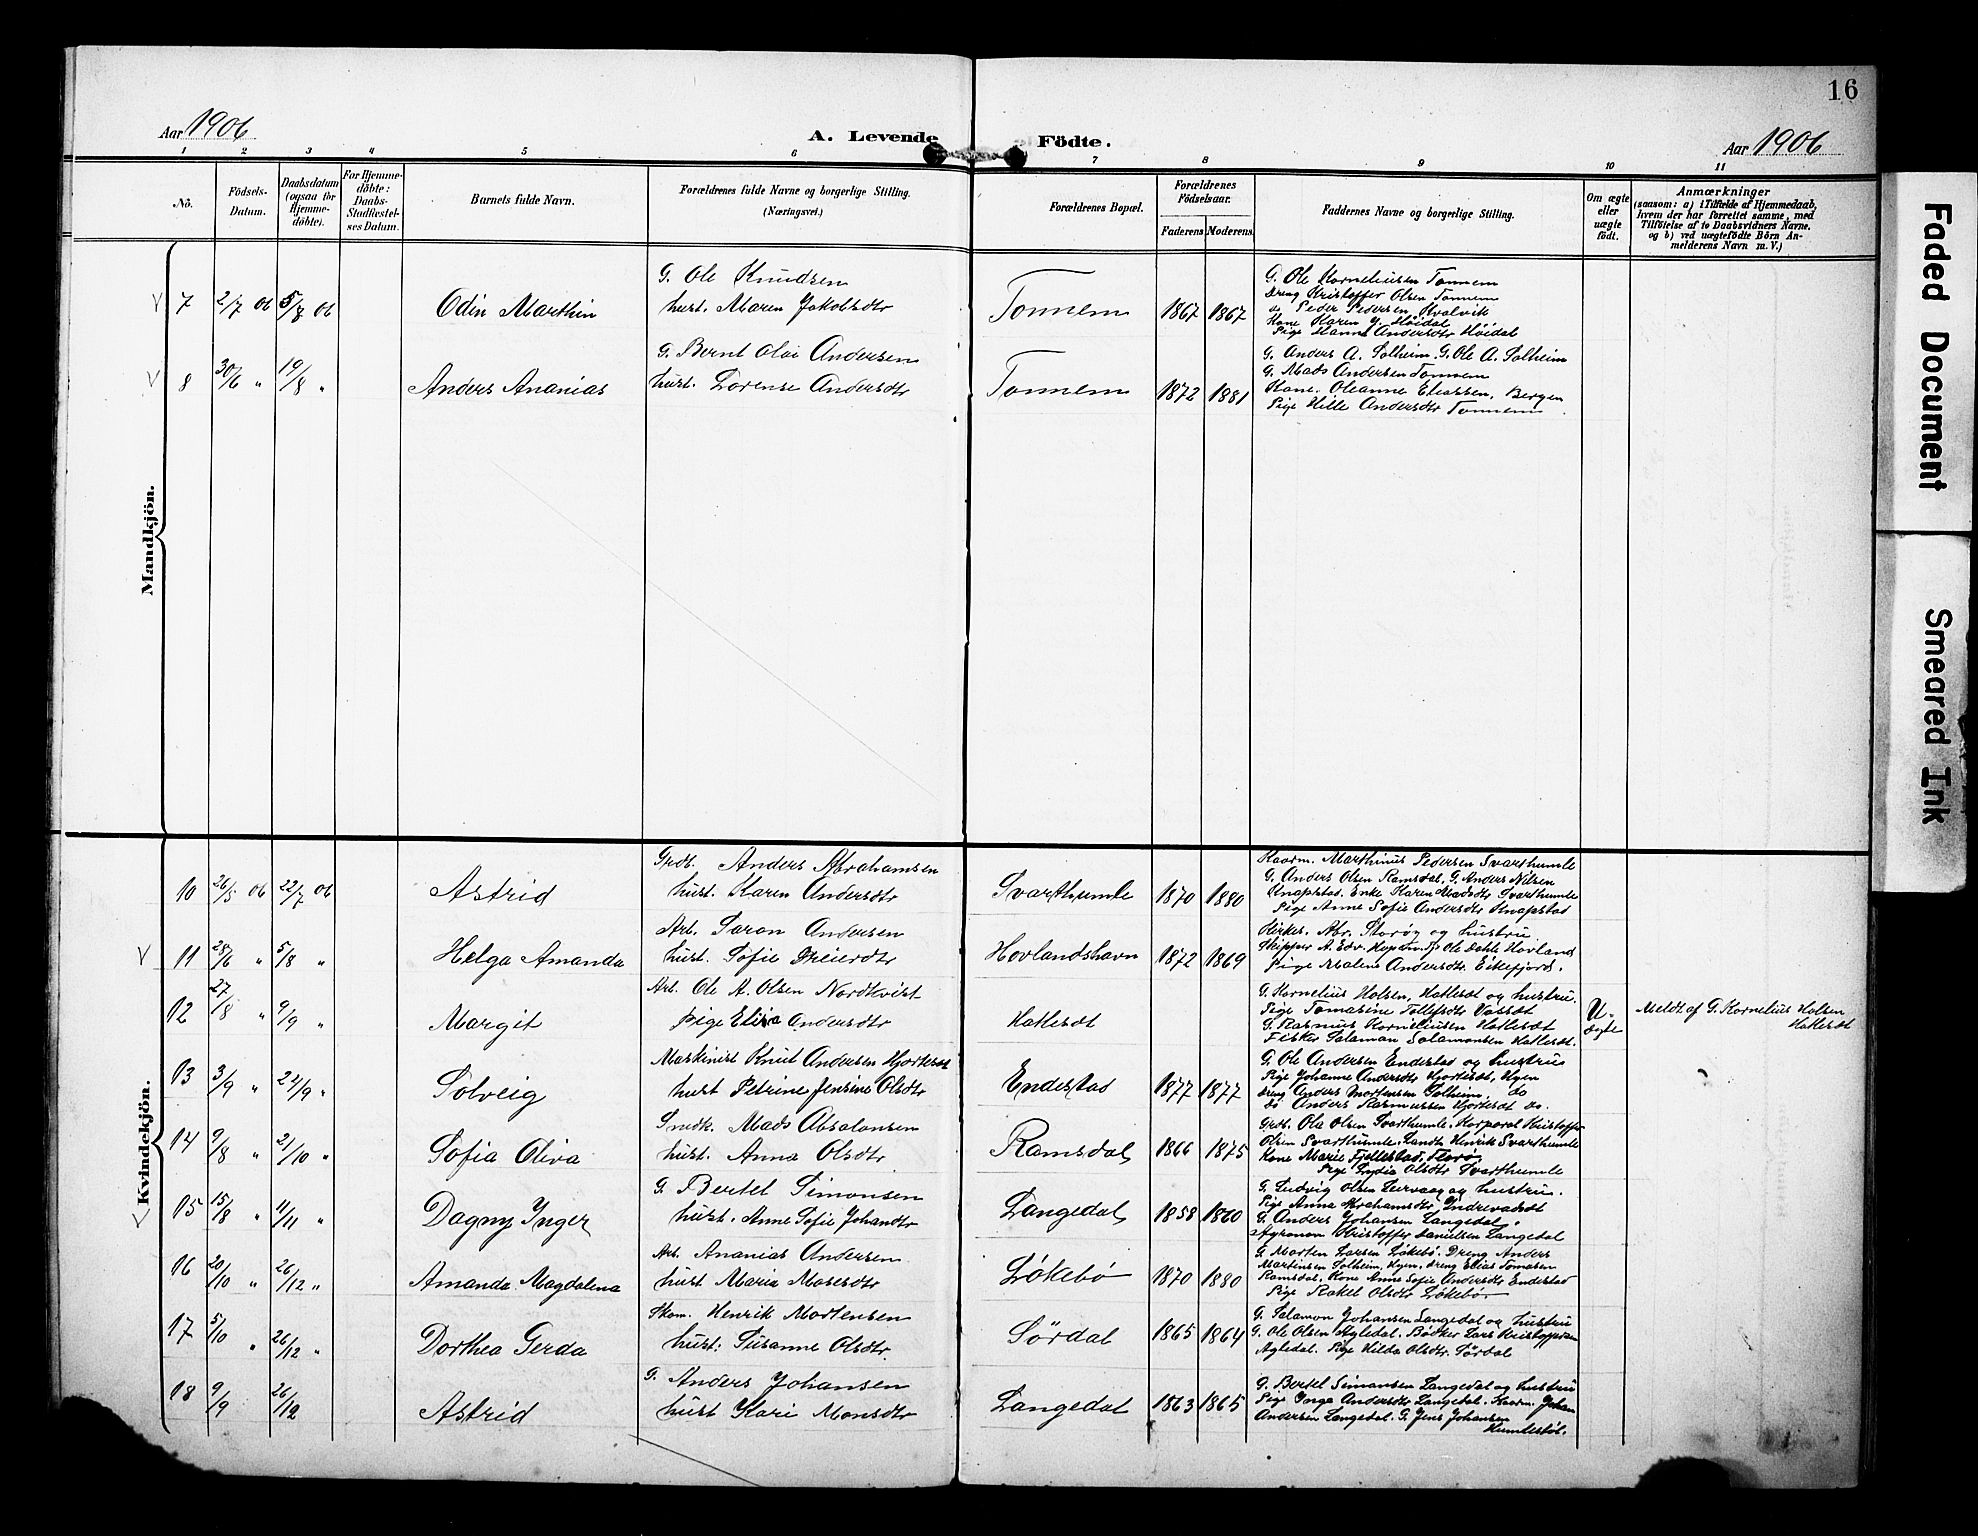 16
Aar 1906
A. Levende Födte.
Aar 1906
1 2 3 4 5 6 7 8 9 10 11
Nô.
Födsels-Datum.
Daabsdatum (ogsaa for Hjemme-döbte).
For Hjemme-döbte: Daabs-Stadfæstel-ses Datum.
Barnets fulde Navn.
Forældrenes fulde Navne og borgerlige Stilling. (Næringsvei.)
Forældrenes Bopæl.
Forældrenes Födselsaar.
Faderens Moderens
Faddernes Navne og borgerlige Stilling.
Om ægte eller uægte födt.
Anmærkninger
(saasom: a) i Tilfælde af Hjemmedaab,
hvem der har forrettet samme, med
Tilföielse af to Daabsvidners Navne,
og b) ved uægtefödte Börn An-
melderens Navn m. V.)
Mandkjön.
7 2/7 06 5/8 06 Odin Marthin
G. Ole Knudsen
hust. Maren Jakobsdtr
Tonnem 1867 1867
G. Ole Korneliussen Tonnem
Dreng Kristoffer Olsen Tonnem
do Peder Pedersen Kvalvik
Kone Karen J. Höidal
Pige Hanna Andersdtr Höidal
8 30/6 " 19/8 " Anders Ananias
G. Bernt Olai Andersen
hust. Lorense Andersdtr
Tonnem 1872 1881
G. Anders A. Solheim, G. Ole A. Solheim
G. Mads Andersen Tonnem
Kone Oleanne Eliassen, Bergen
Pige Hille Andersdtr Tonnem
Kvindekjön.
10 26/5 06 22/7 06 Astrid
Grdb. Anders Abrahamsen
hust. Karen Andersdtr
Svarthumle 1870 1880
Kaarm. Marthinus Pedersen Svarthumle
G. Anders Olsen Ramsdal, G. Anders Nilsen
Knapstad. Enke Karen Madsdtr Svarthumle
Pige Anne Sofie Andersdtr Knapstad
11 28/6 " 5/8 " Helga Amanda
Arb. Saron Andersen
hust. Sofie Dreierdtr
Hovlandshavn 1872 1869
Kirkes. Abr. Storøg og hustru
Skipper A. Edv. Ole Dahle Hovland
Pige Malene Andersdtr. Eikefjord.
12 27/8 " 9/9 " Margit
Arb. Ole A. Olsen Nordkvist
Pige Elisa Andersdtr
Hatleset
G. Kornelius Holsen, Hatleset og hustru.
Pige Tomasine Tollefsdtr Vasset
G. Rasmus Korneliusen Hatleset
Fisker Salamon Salamonsen Hatleset.
U-ægte
Meldt af G. Kornelius Holsen
Hatleset
13 3/9 " 22/9 " Solveig
Maskinist Knut Andersen Hjorteset
hust Petrine Jensine Olsdtr
Endestad 1877 1877
G. Ole Andersen Endestad og hustru
Pige Johanne Andersdtr Hjorteset, Kgen
dreng Anders Mortensen Solheim, do
do Anders Rasmussen Hjorteset do.
14 9/8 " 21/10 " Sofia Oliva
Smdk. Mads Absalonsen
hust. Anna Olsdtr
Ramsdal 1866 1875
Grdb. Ola Olsen Svarthumle. Korporal Kristoffer
Olsen Svarthumle. Landh. Henrik Svarthumle
Kone Marie Fjellestad, Florö,
Pige Lydia Olsdtr Svarthumle
15 15/8 " 11/11 " Dagny Inger
G. Bertel Simonsen
hust. Anne Sofie Johandtr
Langedal 1858 1860
G. Ludvig Olsen Leirvaag og hustru.
Pige Anna Abrahamsdtr Indrevasset
G. Anders Johansen Langedal.
Agronom Kristoffer Danielsen Langedal
16 20/10 " 26/12 " Amanda Magdalena
Arb. Ananias Andersen
hust Maria Mosesdtr
Lökebö 1870 1880
G. Morten Larsen Lökebö. Dreng Anders
Martinsen Solheim, Kgen, dreng Elias Tomasen
Ramsdal. Kone Anne Sofie Andersdtr Endestad
Pige Rakel Olsdtr Lökebö
17 5/10 " 26/12 " Dorthea Gerda
Skom. Henrik Mortensen
hust: Susanne Olsdtr
Sördal 1865 1864
G. Salamon Johansen Langedal og hustru
G. Ole Olsen Agledal. Bödker Lars Kristoffersen
Agledal. Pige Hilda Olsdtr. Sördal
18 9/9 26/12 Astrid
G. Anders Johansen
hust Kari Monsdtr
Langedal 1863 1865
G. Bertel Simonsen Langedal og hustru
Pige Inga Andersdtr Langedal. Kaarm. Johan
Andersen Langedal. G. Jens Johansen
Humlestöl.
Faded Document
Smeared Ink